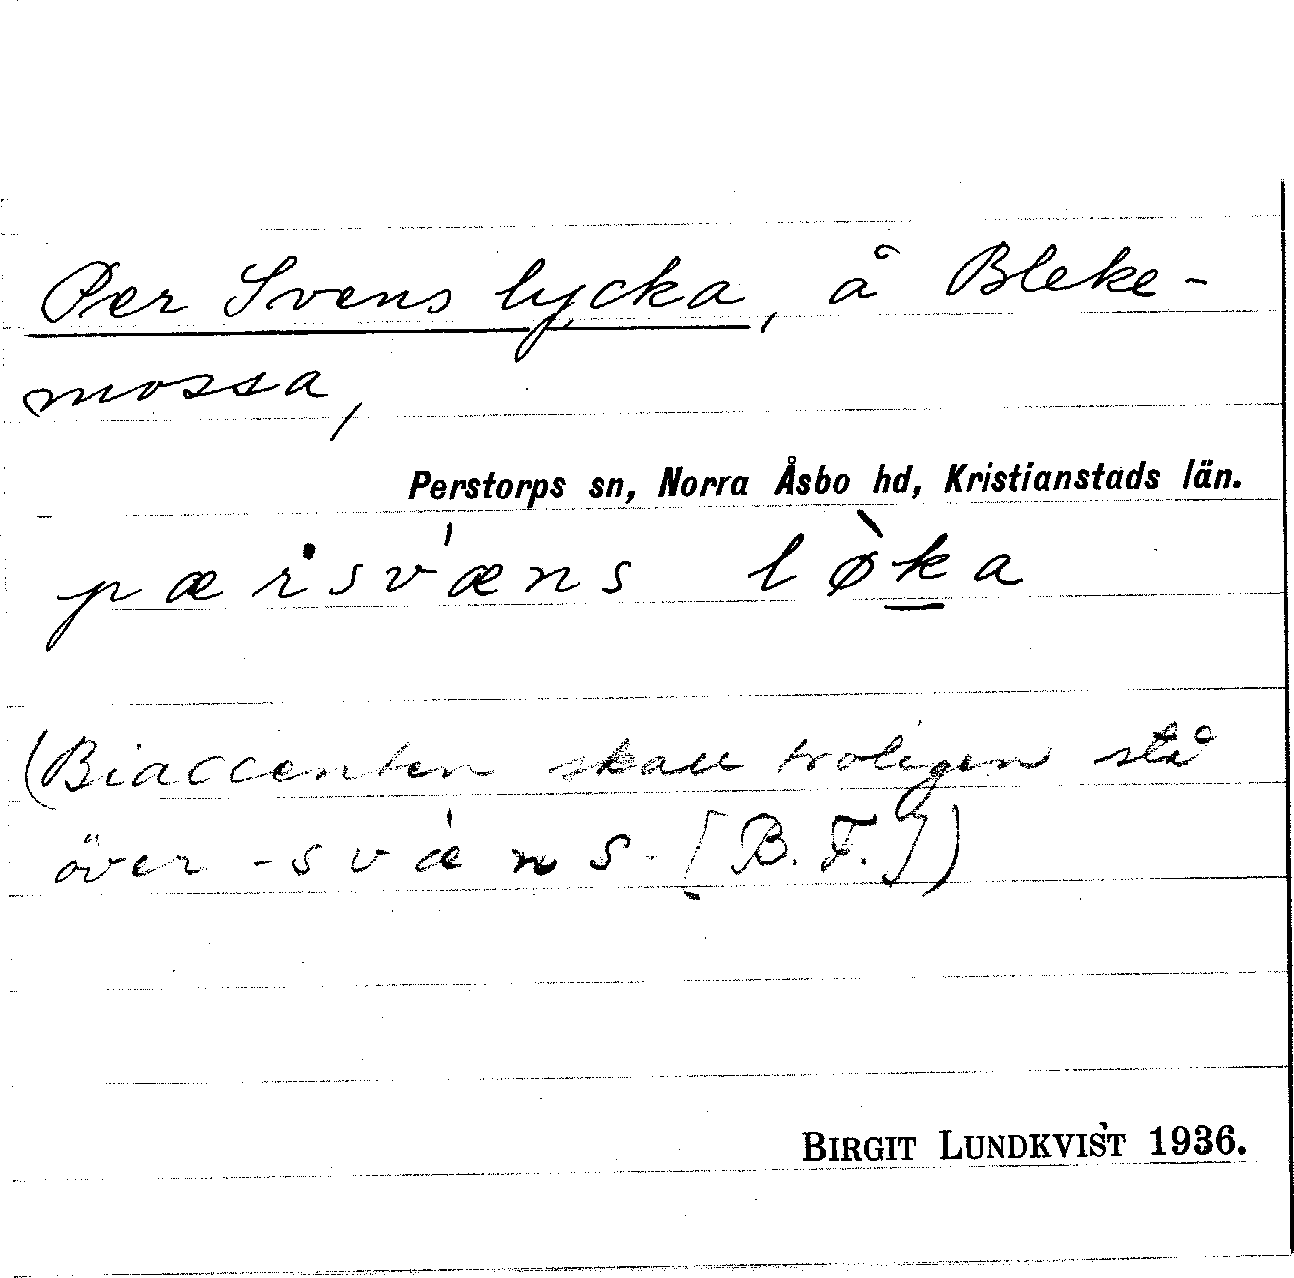 Per Svens lycka, å Bleke-
mossa,
Perstorps sn, Norra Åsbo hd, Kristianstads län.
pærsvæ̀ns lø̀ka
(Biaccenten skall troligen stå
över -svæns- [B.F.])
BIRGIT LUNDKVIST 1936.